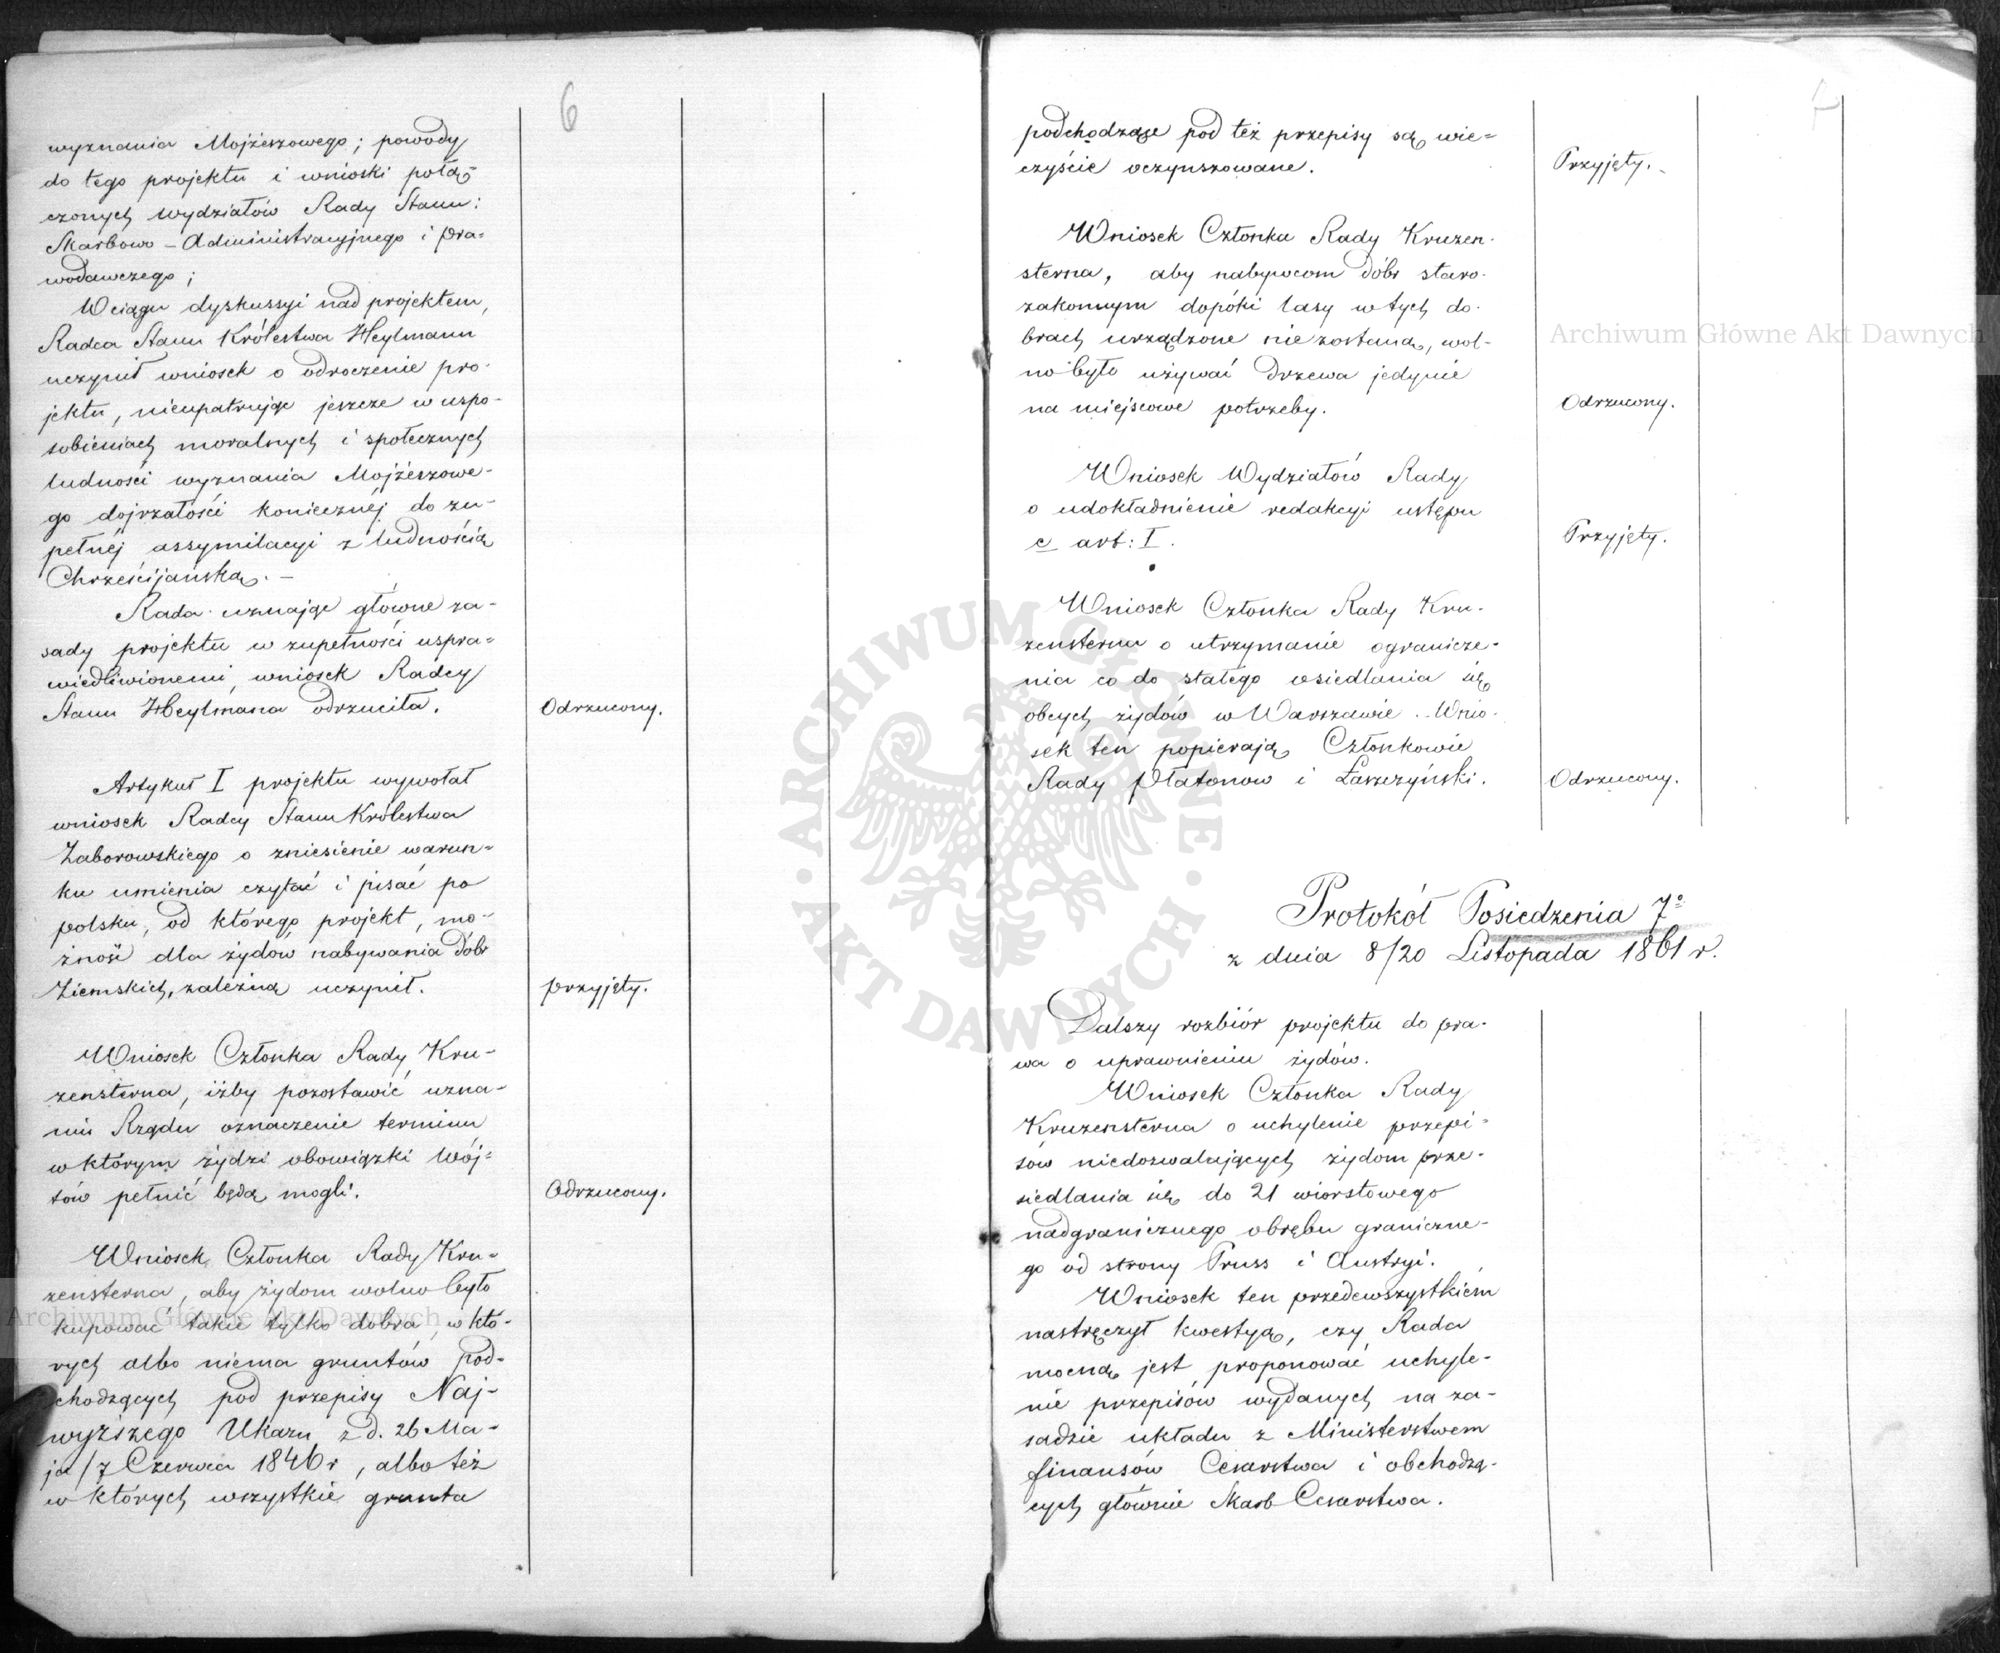 6
wyznania Mojżeszowego; powody
do tego projektu i wnioski połą-
czonych Wydziałów Rady Stanu:
Skarbowo-Administracyjnego i Pra-
wodawczego;
W ciągu dyskussyi nad projektem,
Radca Stanu Królestwa Heylmann
uczynił wniosek o odroczenie pro-
jektu, nieupatrując jeszcze w uspo-
sobieniach moralnych i społecznych
ludności wyznania Mojżeszowe-
go dojrzałości koniecznéj do zu-
pełnéj assymilacyi z ludnością
Chrześcijańską. –
Rada uznając główne za-
sady projektu w zupełności uspra-
wiedliwionemi, wniosek Radcy
Stanu Heylmana odrzuciła.
Odrzucony.
Artykuł I projektu wywołał
wniosek Radcy Stanu Królestwa
Zaborowskiego o zniesienie warun-
ku umienia czytać i pisać po
polsku, od którego projekt, mo-
żność dla żydów nabywania dóbr
Ziemskich, zależną uczynił.
przyjęty.
Wniosek Członka Rady Kru-
zensterna, iżby pozostawić uzna-
niu Rządu oznaczenie terminu
w którym żydzi obowiązki Wój-
tów pełnić będą mogli.
Odrzucony.
Wniosek Członka Rady Kru-
zensterna, aby żydom wolno było
kupować takie tylko dobra, w któ-
rych albo niema gruntów pod-
chodzących pod przepisy Naj-
wyższego Ukazu z d. 26 Ma-
ja/7 Czerwca 1846 r, albo też
w których wszystkie grunta
podchodzące pod też przepisy są wie-
czyście oczynszowane.
Przyjęty.
Wniosek Członka Rady Kruzen-
sterna, aby nabywcom dóbr staro-
zakonnym dopóki lasy w tych do-
brach urządzone nie zostaną, wol-
no było używać drzewa jedynie
na miejscowe potrzeby.
Odrzucony.
Wniosek Wydziałów Rady
o udokładnienie redakcyi ustępu
c art: I.
Przyjęty.
Wniosek Członka Rady Kru-
zensterna o utrzymanie ogranicze-
nia co do stałego osiedlania się
obcych żydów w Warszawie. Wnio-
sek ten popierają Członkowie
Rady Płatonow i Łaszczyński.
Odrzucony.
Protokół Posiedzenia 7º
z dnia 8/20 Listopada 1861 r.
Dalszy rozbiór projektu do pra-
wa o uprawnieniu żydów.
Wniosek Członka Rady
Kruzensterna o uchylenie przepi-
sów niedozwalających żydom prze-
siedlania się do 21 wiorstowego
nadgranicznego obrębu graniczne-
go od strony Pruss i Austryi.
Wniosek ten przedewszystkiém
nastręczył kwestyą, czy Rada
mocną jest proponować uchyle-
nie przepisów wydanych na za-
sadzie układu z Ministerstwem
finansów Cesarstwa i obchodzą-
cych głównie Skarb Cesarstwa.
Archiwum Główne Akt Dawnych
Archiwum Główne Akt Dawnych
ARCHIWUM GŁÓWNE · AKT DAWNYCH ·